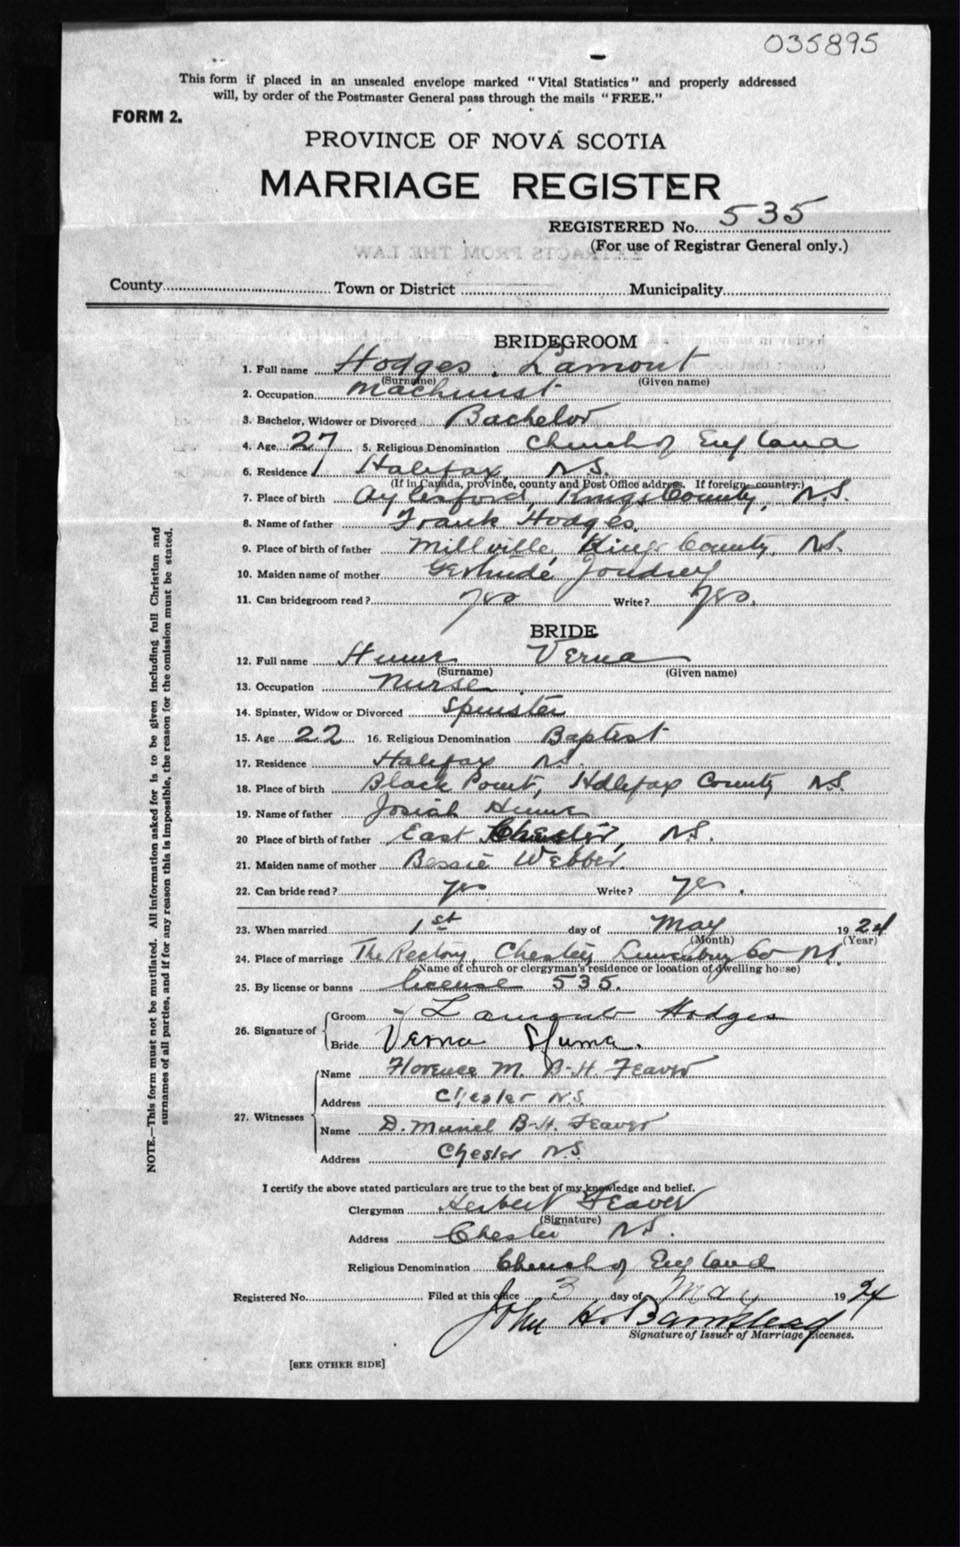 035895
This form if placed in an unsealed envelope marked "Vital Statistics" and properly addressed
will, by order of the Postmaster General pass through the mails "FREE."
FORM 2.
PROVINCE OF NOVA SCOTIA
MARRIAGE REGISTER
REGISTERED No. 535
(For use of Registrar General only.)
EXTRACTS FROM THE LAW
County Town or District Municipality
BRIDEGROOM
1. Full name Hodges, Lamont
(Surname) (Given name)
2. Occupation Machinist
3. Bachelor, Widower or Divorced Bachelor
4. Age 27 5. Religious Denomination Church of England
6. Residence Halifax, N.S.
(If in Canada, province, county and Post Office address. If foreign, country.)
7. Place of birth Aylesford, Kings County, N.S.
8. Name of father Frank Hodges.
9. Place of birth of father Millville, Kings County, N.S.
10. Maiden name of mother Gertrude Joudrey
11. Can bridegroom read? yes Write? yes.
BRIDE
12. Full name Hume Verna
(Surname) (Given name)
13. Occupation Nurse
14. Spinster, Widow or Divorced Spinster
15. Age 22 16. Religious Denomination Baptist
17. Residence Halifax N.S.
18. Place of birth Black Point, Halifax County N.S.
19. Name of father Josiah Hume
20 Place of birth of father East Chester, N.S.
21. Maiden name of mother Bessie Webber.
22. Can bride read? yes Write? yes.
23. When married 1st day of May 1924
(Month) (Year)
24. Place of marriage The Rectory, Chester, Lunenburg Co N.S.
(Name of church or clergyman's residence or location of dwelling house)
25. By license or banns license 535.
26. Signature of Groom Lamont Hodges
Bride Verna Hume.
27. Witnesses Name Florence M. B-H. Feaver
Address Chester N.S.
Name D. Muriel B-H. Feaver
Address Chester N.S.
I certify the above stated particulars are true to the best of my knowledge and belief.
Clergyman Herbert Feaver
(Signature)
Address Chester N.S.
Religious Denomination Church of England
Registered No. Filed at this office 3 day of May 1924
John H. Barnstead
Signature of Issuer of Marriage Licenses.
[SEE OTHER SIDE]
NOTE.—This form must not be mutilated. All information asked for is to be given including full Christian and
surnames of all parties, and if for any reason this is impossible, the reason for the omission must be stated.